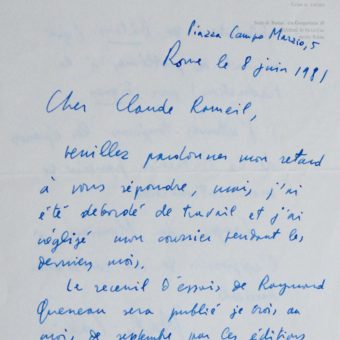 Piazza Campo Marzio, 5
Rome le 8 juin 1981
Cher Claude Rameil,
veuillez pardonner mon retard
à vous répondre, mais j'ai
été débordé de travail et j'ai
négligé mon courrier pendant les
derniers mois.
Le receuil d'essais de Raymond
Queneau sera publié je crois au
mois de septembre par les éditions